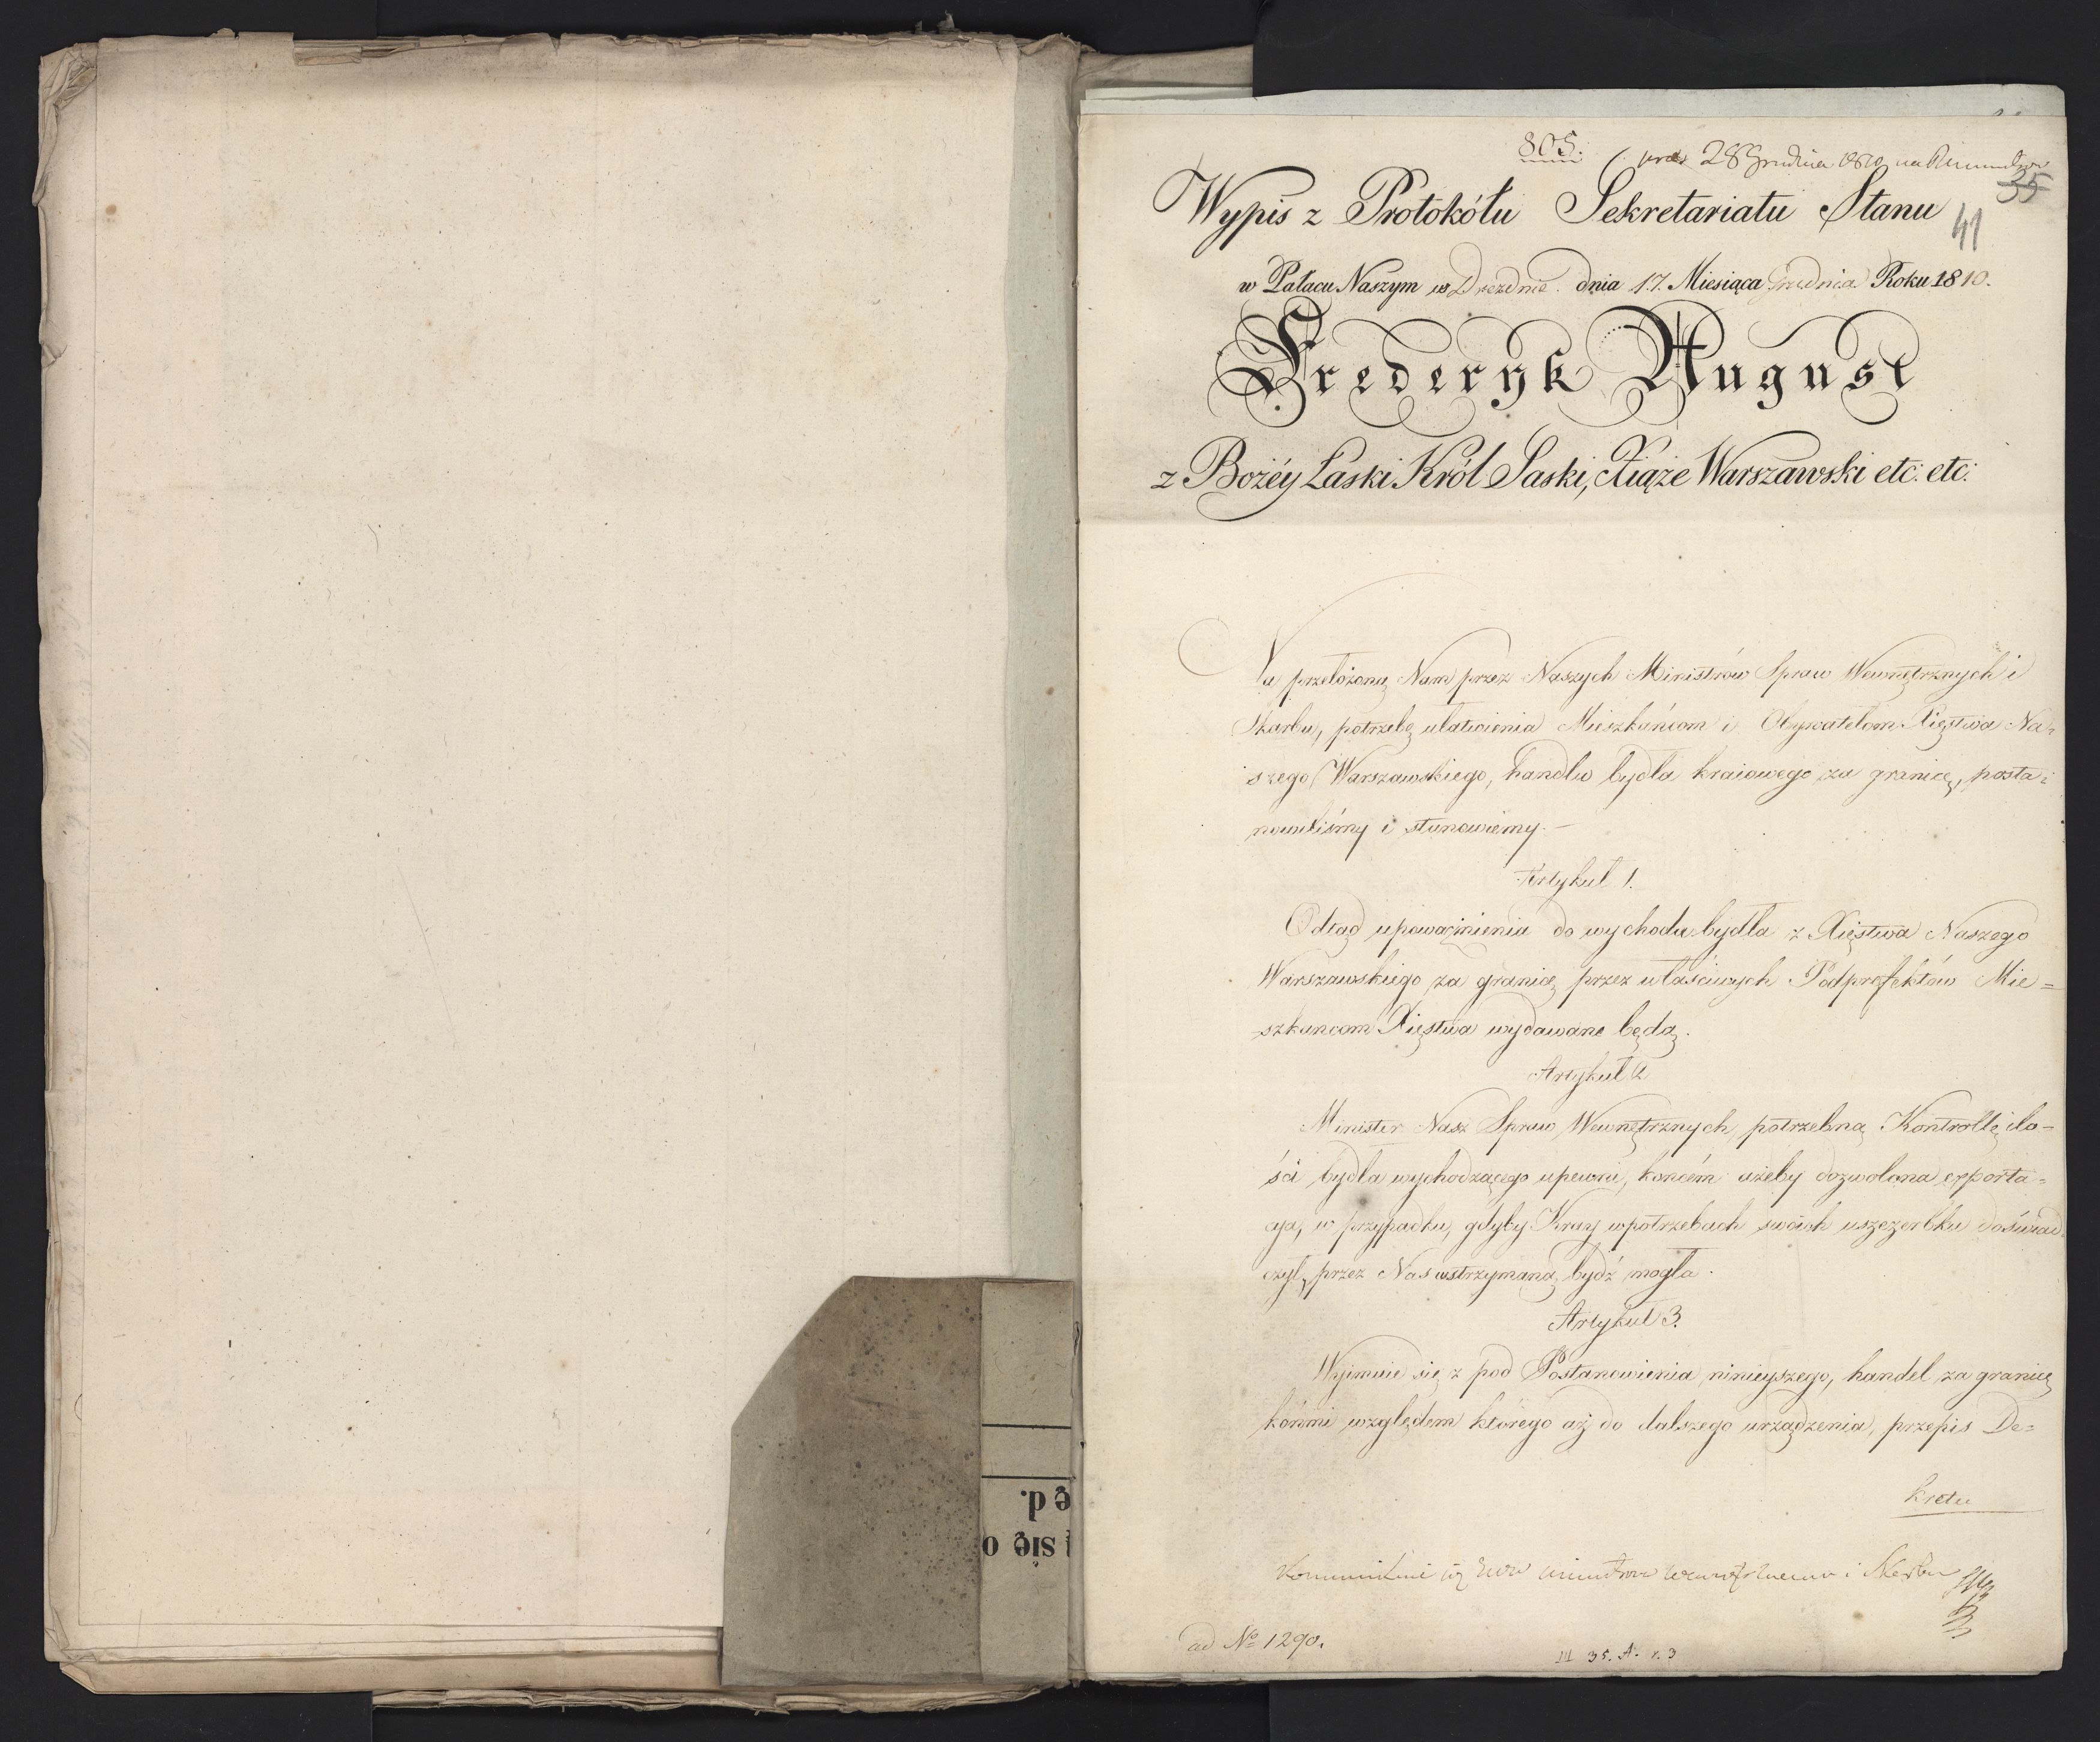 805.
28 Grudnia 1810 na
35
Wypis z Protokółu Sekretariatu Stanu
41
w Pałacu Naszym w Dreznie. dnia 17. Miesiąca Grudnia Roku 1810.
Frederyk August
z Bożéy Łaski Król Saski, Xiąże Warszawski etc: etc:
Na przełożoną Nam przez Naszych Ministrów Spraw Wewnętrznych i
Skarbu, potrzebę ułatwienia Mieszkańcom i Obywatelom Xięstwa Na-
szego Warszawskiego, handlu bydła kraiowego za granicę, posta-
nowiliśmy i stanowiemy. –
Artykuł 1.
Odtąd upoważnienia do wychodu bydła z Xięstwa Naszego
Warszawskiego za granicę przez właściwych Podprefektów Mie=
szkancom Xięstwa wydawane będą.
Artykuł 2
Minister Nasz Spraw Wewnętrznych, potrzebną Kontrollę ilo-
ści bydła wychodzącego upewni, końcem ażeby dozwolona exporta-
cya, w przypadku, gdyby Kray w potrzebach swoich uszczerbku doświad-
czył, przez Nas wstrzymaną bydź mogła.
Artykuł 3.
Wyimuie się z pod Postanowienia ninieyszego, handel za granicę
końmi względem którego aż do dalszego urządzenia, przepis De=
kretu
ęd.
się o
ad No 1290.
III 35. A. r. 3